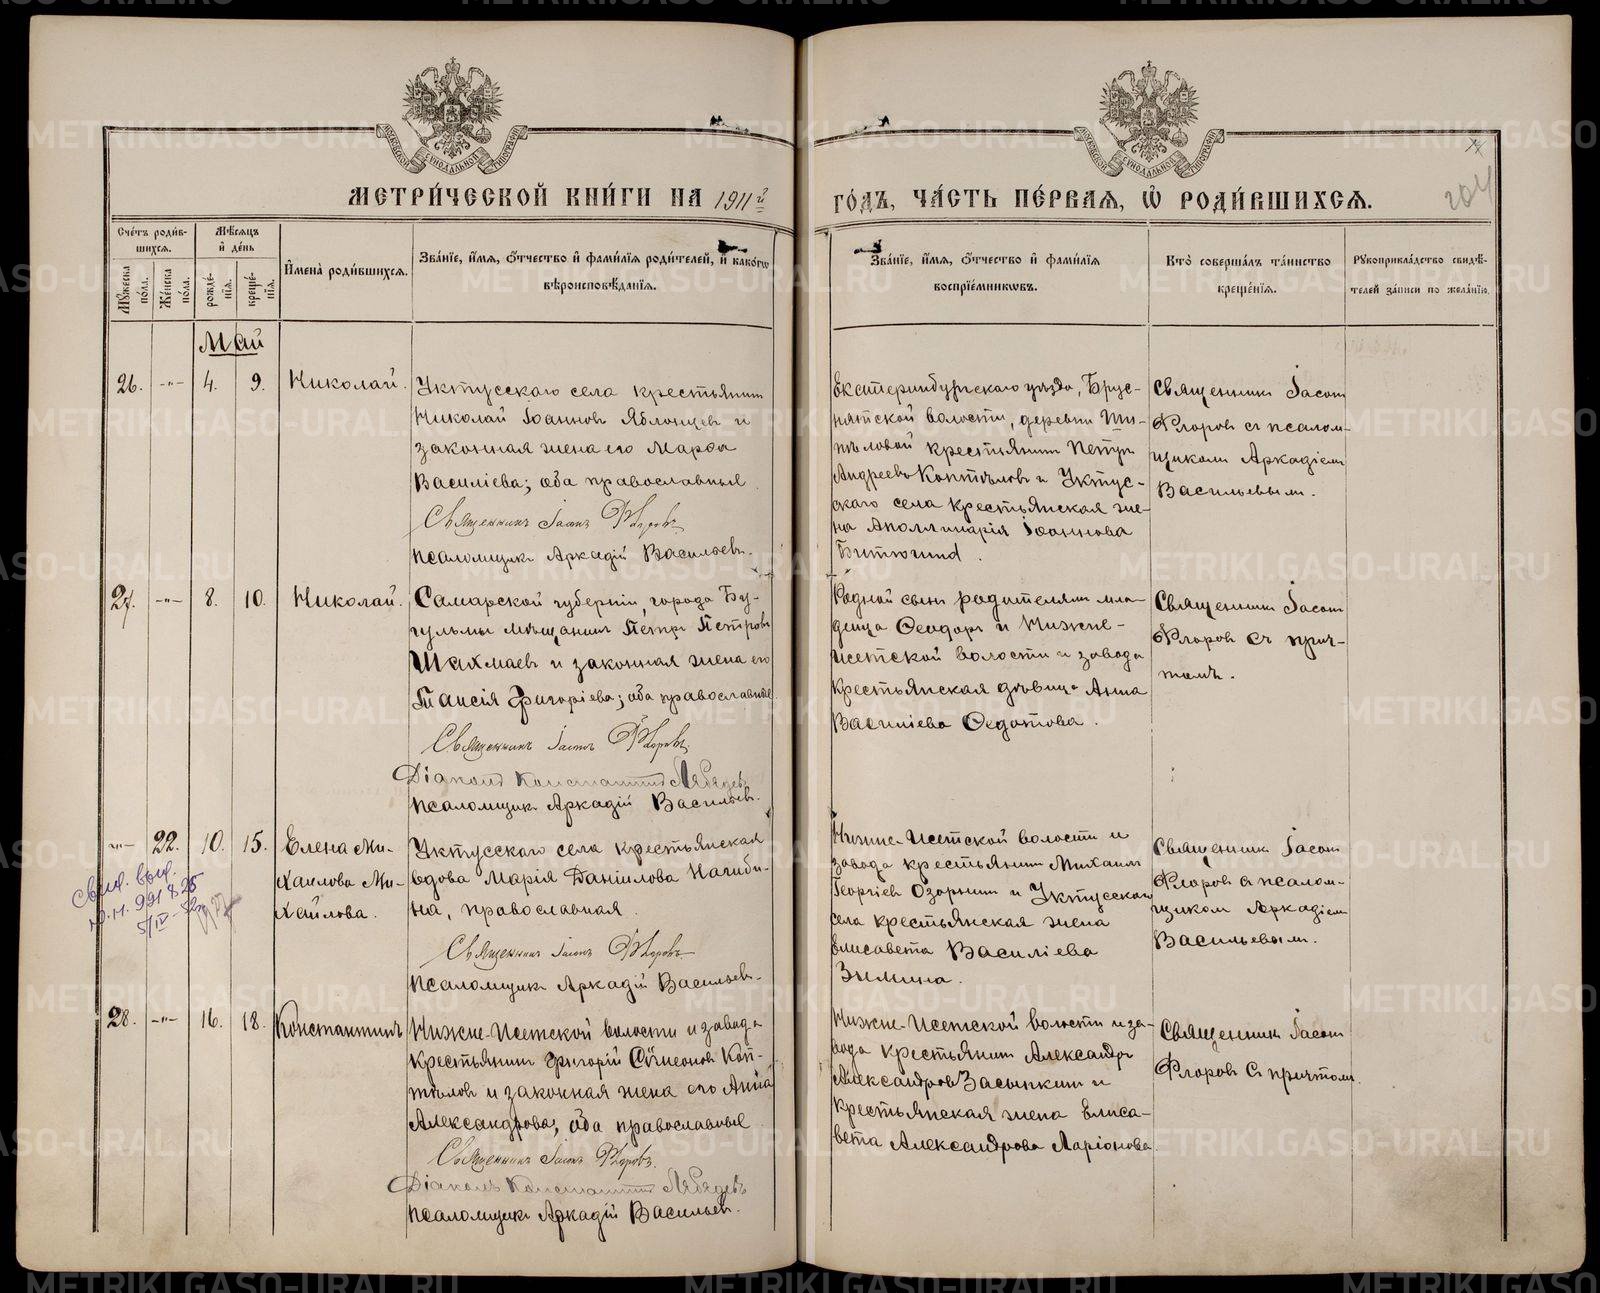 МЕТРИ́ЧЕСКОЙ КНИ́ГИ НА 1911й
ГО́ДЪ, ЧА́СТЬ ПЕ́РВАЯ, Ѡ РОДИ́ВШИХСЯ.
204
Сче́тъ роди́вшихся.
Му́жеска по́ла.
Же́нска по́ла.
Мѣ́сяцъ и де́нь
рожде́нїя.
креще́нїя.
И҆мена̀ роди́вшихся.
Зва́нїе, и҆́мя, ѻ҆́тчество и҆ фами́лїя роди́телей, и҆ како́гѡ
вѣроисповѣ́данїя.
Зва́нїе, и҆́мя, ѻ҆́тчество и҆ фами́лїя
воспрїе́мникѡвъ.
Кто̀ соверша́лъ та́инство
креще́нїя.
Рꙋкоприкла́дство свидѣ́-
телей за́писи по жела́нїю.
Май
26. -"- 4. 9. Николай.
Уктусскаго села крестьянинъ
Николай Іоанновъ Яблонцевъ и
законная жена его Марѳа
Василіева; оба православные
Священникъ Іасонъ Флоровъ
Псаломщикъ Аркадій Васильевъ.
Екатеринбургскаго уѣзда, Брус-
нятской волости, деревни
крестьянинъ Петръ
Андреевъ Коптѣловъ и Уктус-
скаго села крестьянская же-
на Аполлинарія Іоаннова
Битюгина.
Священникъ Іасонъ
Флоровъ съ псалом-
щикомъ Аркадіемъ
Васильевымъ.
27. -"- 8. 10. Николай.
Самарской губерніи, города Бу-
гульмы мѣщанинъ Петръ Петровъ
Шахмаевъ и законная жена его
Таисія Григоріева; оба православные
Священникъ Іасонъ Флоровъ
Діаконъ Константинъ Лебедевъ
Псаломщикъ Аркадій Васильевъ.
Родной сынъ родителями мла-
денца Ѳеодоръ и Нижне-
Исетской волости и завода
крестьянская дѣвица Анна
Василіева Ѳедотова.
Священникъ Іасонъ
Флоровъ съ прич-
томъ.
-"- 22. 10. 15. Елена Ми-
хаилова Ми-
хайлова.
Свид. выд.
991
5/IV
Уктусскаго села крестьянская
вдова Марія Даніилова Нагиби-
на, православная.
Священникъ Іасонъ Флоровъ
Псаломщикъ Аркадій Васильевъ.
Нижне-Исетской волости и
завода крестьянинъ Михаилъ
Георгіевъ Озорнинъ и Уктусскаго
села крестьянская жена
Елисавета Василіева
Зимина.
Священникъ Іасонъ
Флоровъ съ псалом-
щикомъ Аркадіемъ
Васильевымъ.
28. -"- 16. 18. Константинъ
Нижне-Исетской волости и завода
крестьянинъ Григорій Симеоновъ Коп-
тѣловъ и законная жена его Анна
Александрова, оба православные
Священникъ Іасонъ Флоровъ.
Діаконъ Константинъ Лебедевъ
Псаломщикъ Аркадій Васильевъ.
Нижне-Исетской волости и за-
вода крестьянинъ Александръ
Александровъ Засыпкинъ и
крестьянская жена Елиса-
вета Александрова Ларіонова
Священникъ Іасонъ
Флоровъ съ причтомъ.
METRIKI.GASO-URAL.RU